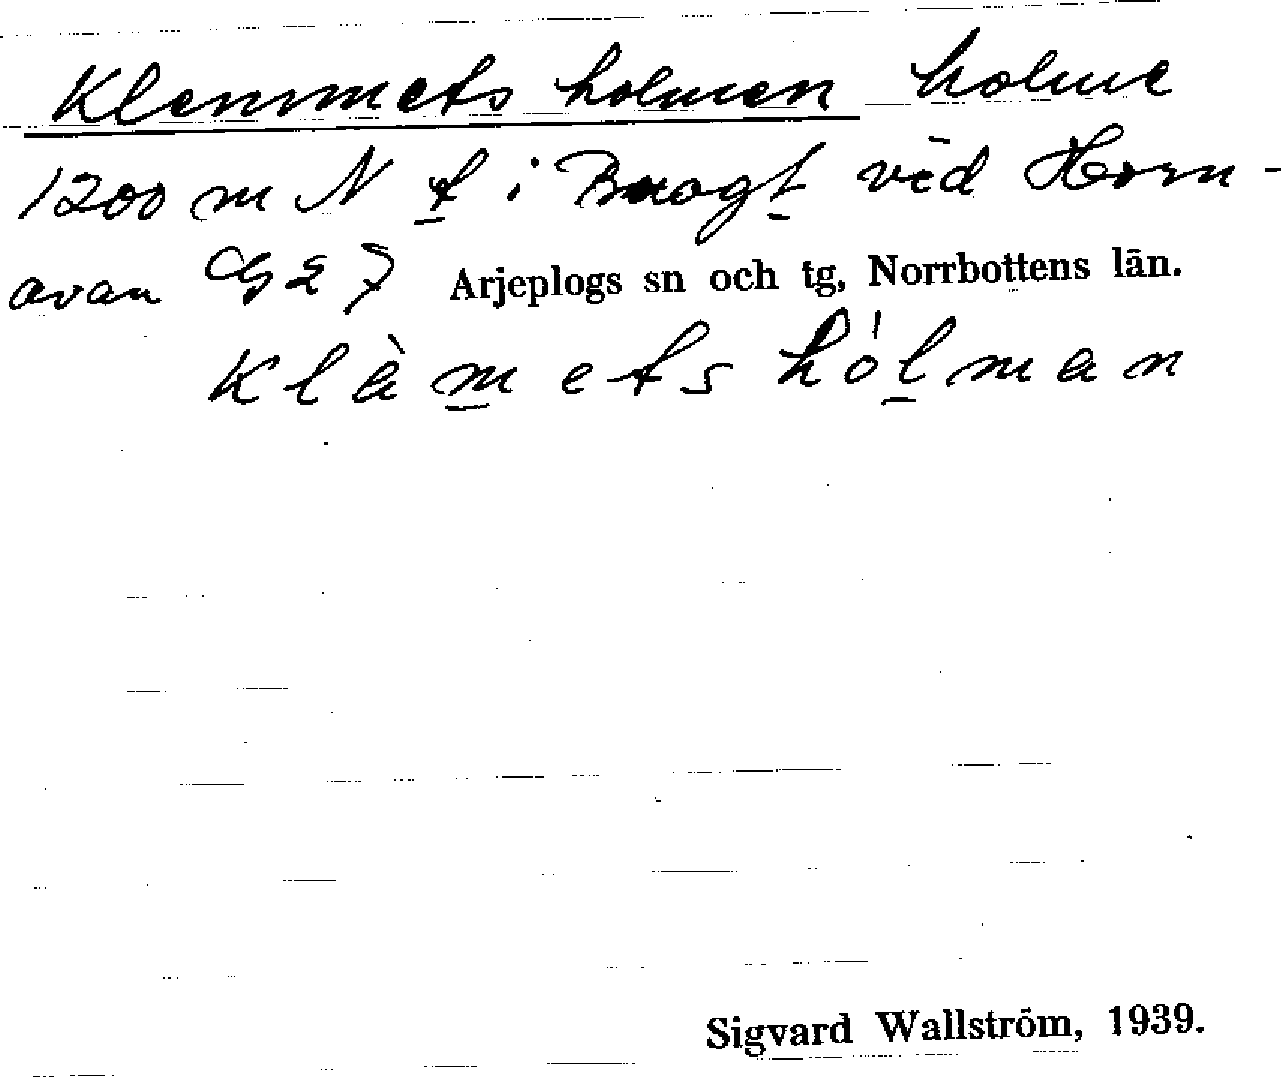 Klemmets holmen holme
1200 m N t i Buogt vid Horn-
avan G 2 7 Arjeplogs sn och tg, Norrbottens län.
klàmets hólman
Sigvard Wallström, 1939.